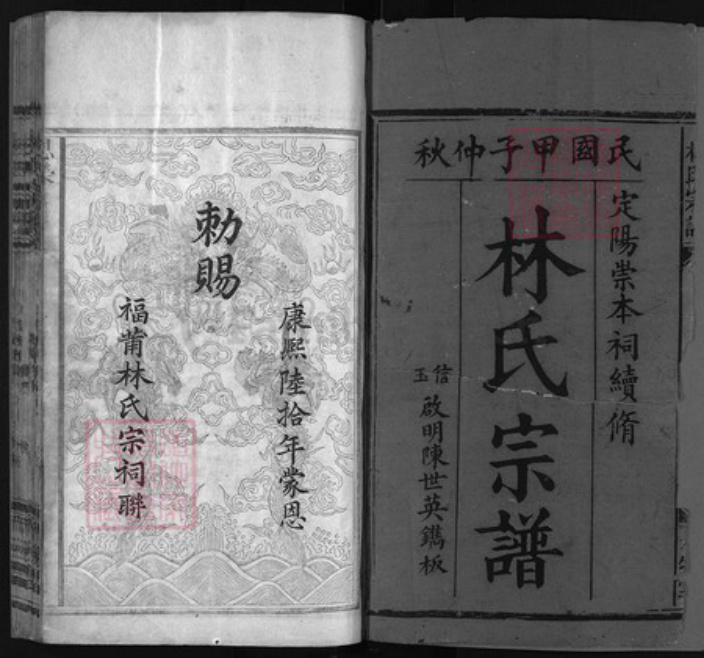 民國甲子仲秋
定陽崇本祠續脩
林氏宗譜
信玉啟明陳世英鐫板
康熙陸拾年蒙恩
勅賜
福莆林氏宗祠聯